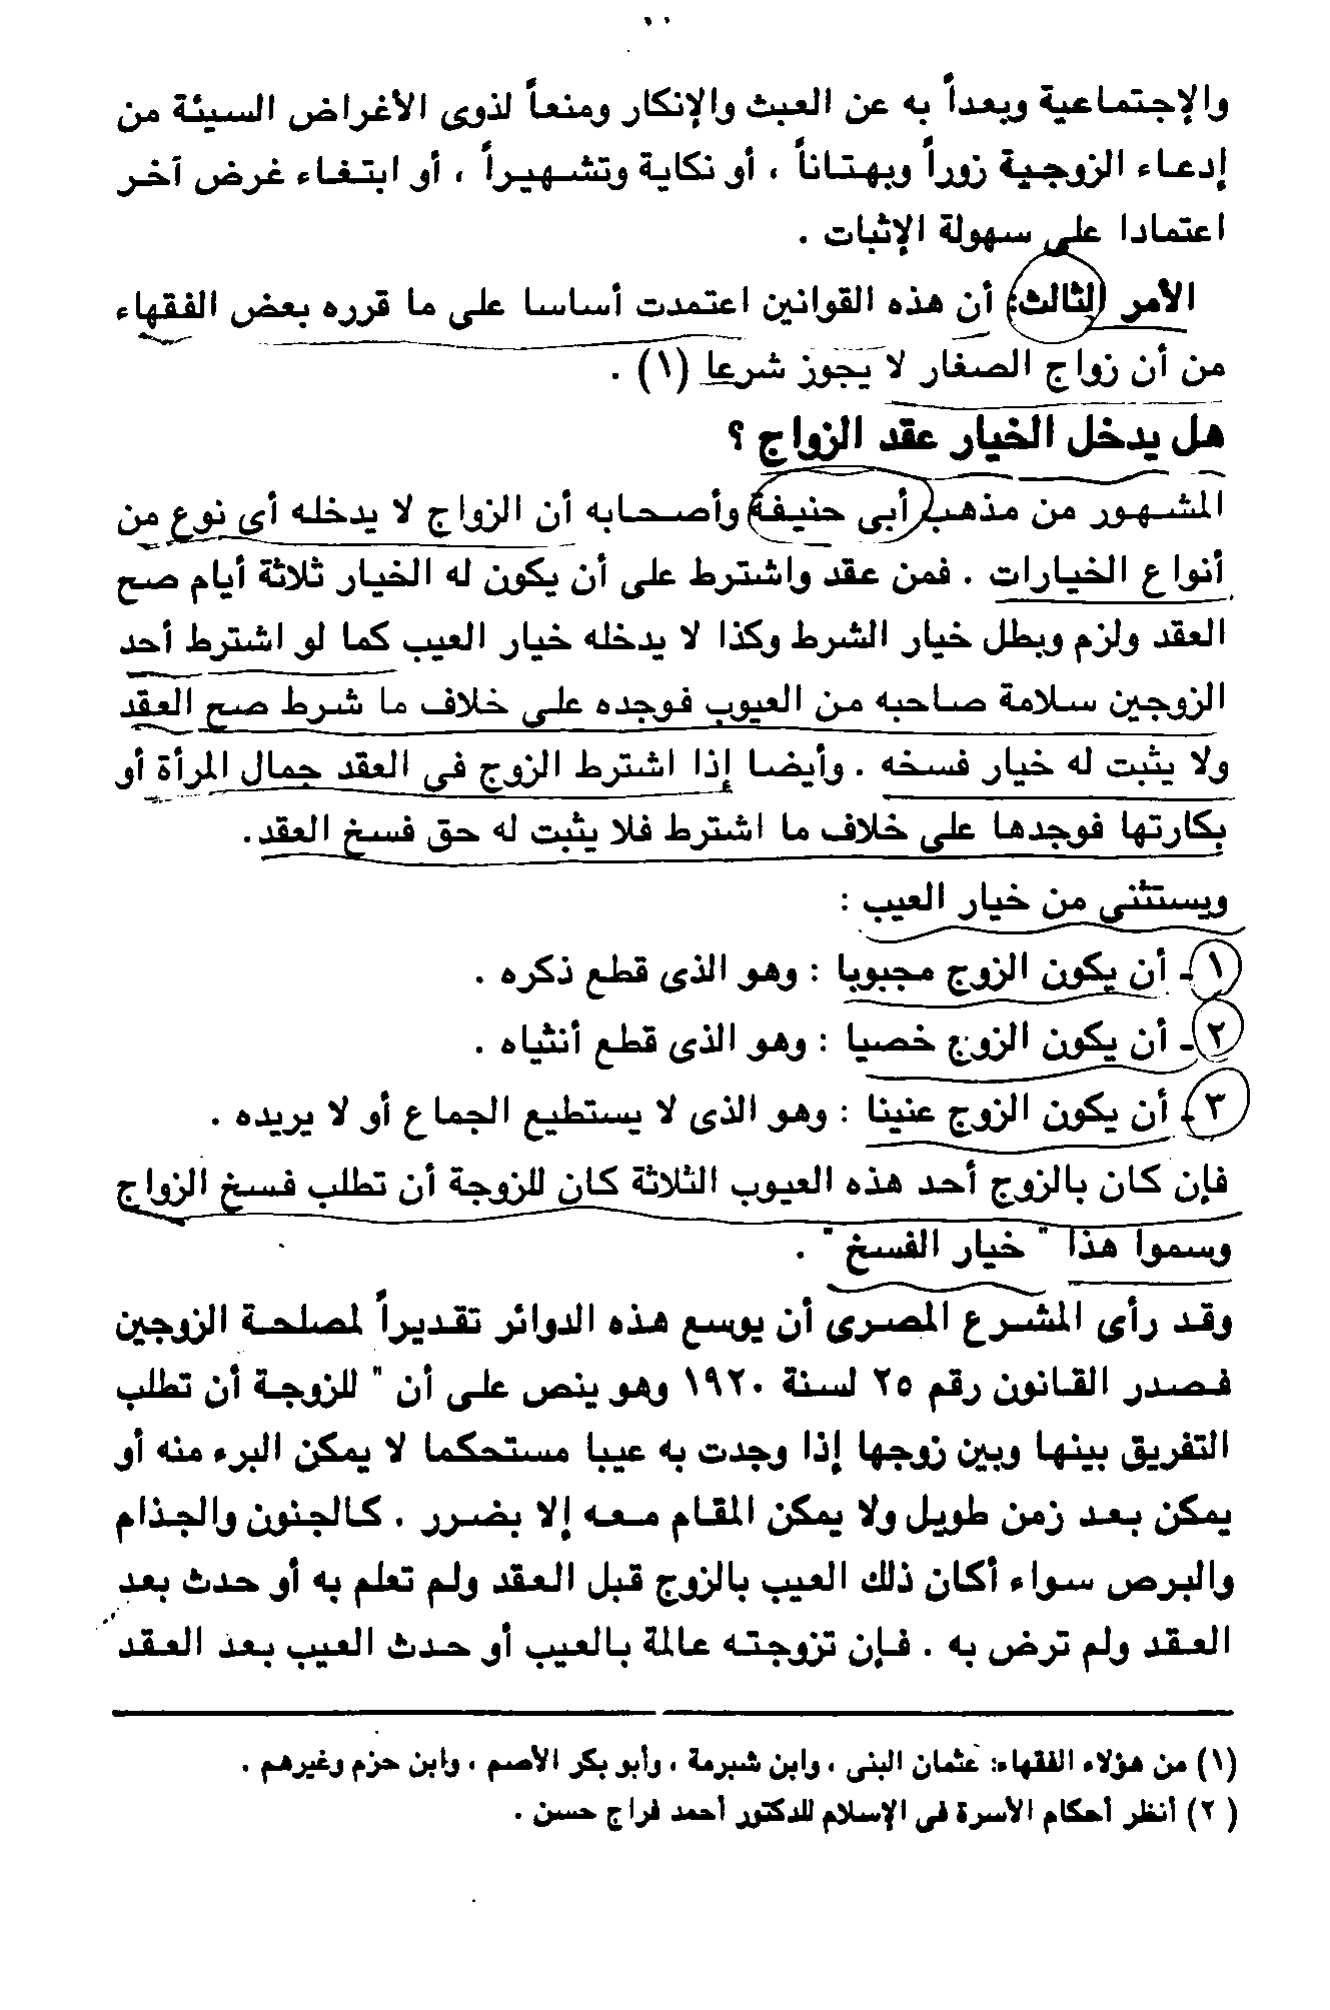 والإجتماعية وبعداً به عن العبث والإنكار ومنعاً لذوى الأغراض السيئة من
إدعاء الزوجية زوراً وبهتاناً ، أو نكاية وتشهيراً ، أو ابتغاء غرض آخر
اعتمادا على سهولة الإثبات .
الأمر الثالث: أن هذه القوانين اعتمدت أساسا على ما قرره بعض الفقهاء
من أن زواج الصغار لا يجوز شرعا (١) .
هل يدخل الخيار عقد الزواج ؟
المشهور من مذهب أبى حنيفة وأصحابه أن الزواج لا يدخله أى نوع من
أنواع الخيارات . فمن عقد واشترط على أن يكون له الخيار ثلاثة أيام صح
العقد ولزم وبطل خيار الشرط وكذا لا يدخله خيار العيب كما لو اشترط أحد
الزوجين سلامة صاحبه من العيوب فوجده على خلاف ما شرط صح العقد
ولا يثبت له خيار فسخه . وأيضا إذا اشترط الزوج فى العقد جمال المرأة أو
بكارتها فوجدها على خلاف ما اشترط فلا يثبت له حق فسخ العقد.
ويستثنى من خيار العيب :
١ ـ أن يكون الزوج مجبوبا : وهو الذى قطع ذكره .
٢ ـ أن يكون الزوج خصيا : وهو الذى قطع أنثياه .
٣ ـ أن يكون الزوج عنينا : وهو الذى لا يستطيع الجماع أو لا يريده .
فإن كان بالزوج أحد هذه العيوب الثلاثة كان للزوجة أن تطلب فسخ الزواج
وسموا هذا " خيار الفسخ " .
وقد رأى المشرع المصرى أن يوسع هذه الدوائر تقديراً لمصلحة الزوجين
فصدر القانون رقم ٢٥ لسنة ١٩٢٠ وهو ينص على أن " للزوجة أن تطلب
التفريق بينها وبين زوجها إذا وجدت به عيبا مستحكما لا يمكن البرء منه أو
يمكن بعد زمن طويل ولا يمكن المقام معه إلا بضرر . كالجنون والجذام
والبرص سواء أكان ذلك العيب بالزوج قبل العقد ولم تعلم به أو حدث بعد
العقد ولم ترض به . فإن تزوجته عالمة بالعيب أو حدث العيب بعد العقد
(١) من هؤلاء الفقهاء: عثمان البنى ، وابن شبرمة ، وأبو بكر الأصم ، وابن حزم وغيرهم .
( ٢) أنظر أحكام الأسرة فى الإسلام للدكتور أحمد فراج حسن .